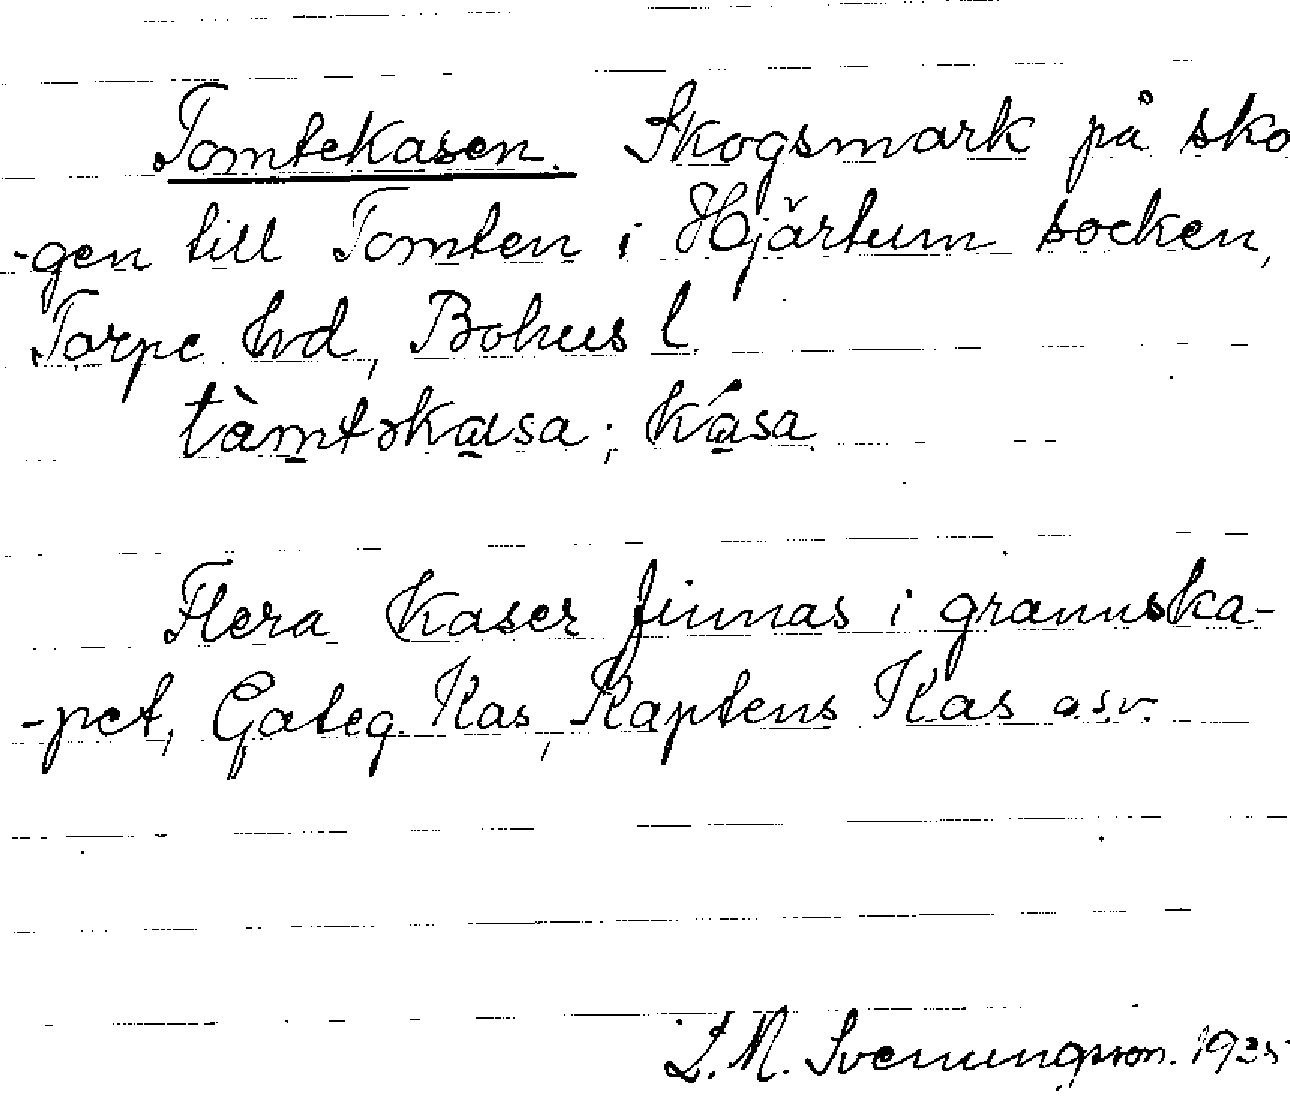 Tomtekasen. Skogsmark på sko
-gen till Tomten i Hjärtum socken,
Torpe hrd, Bohus l.
tàmtəkasa; kása
Flera Kaser finnas i grannska-
-pet, Gateg. Kas, Kaptens Kas osv.
L. M. Svenungsson. 1935